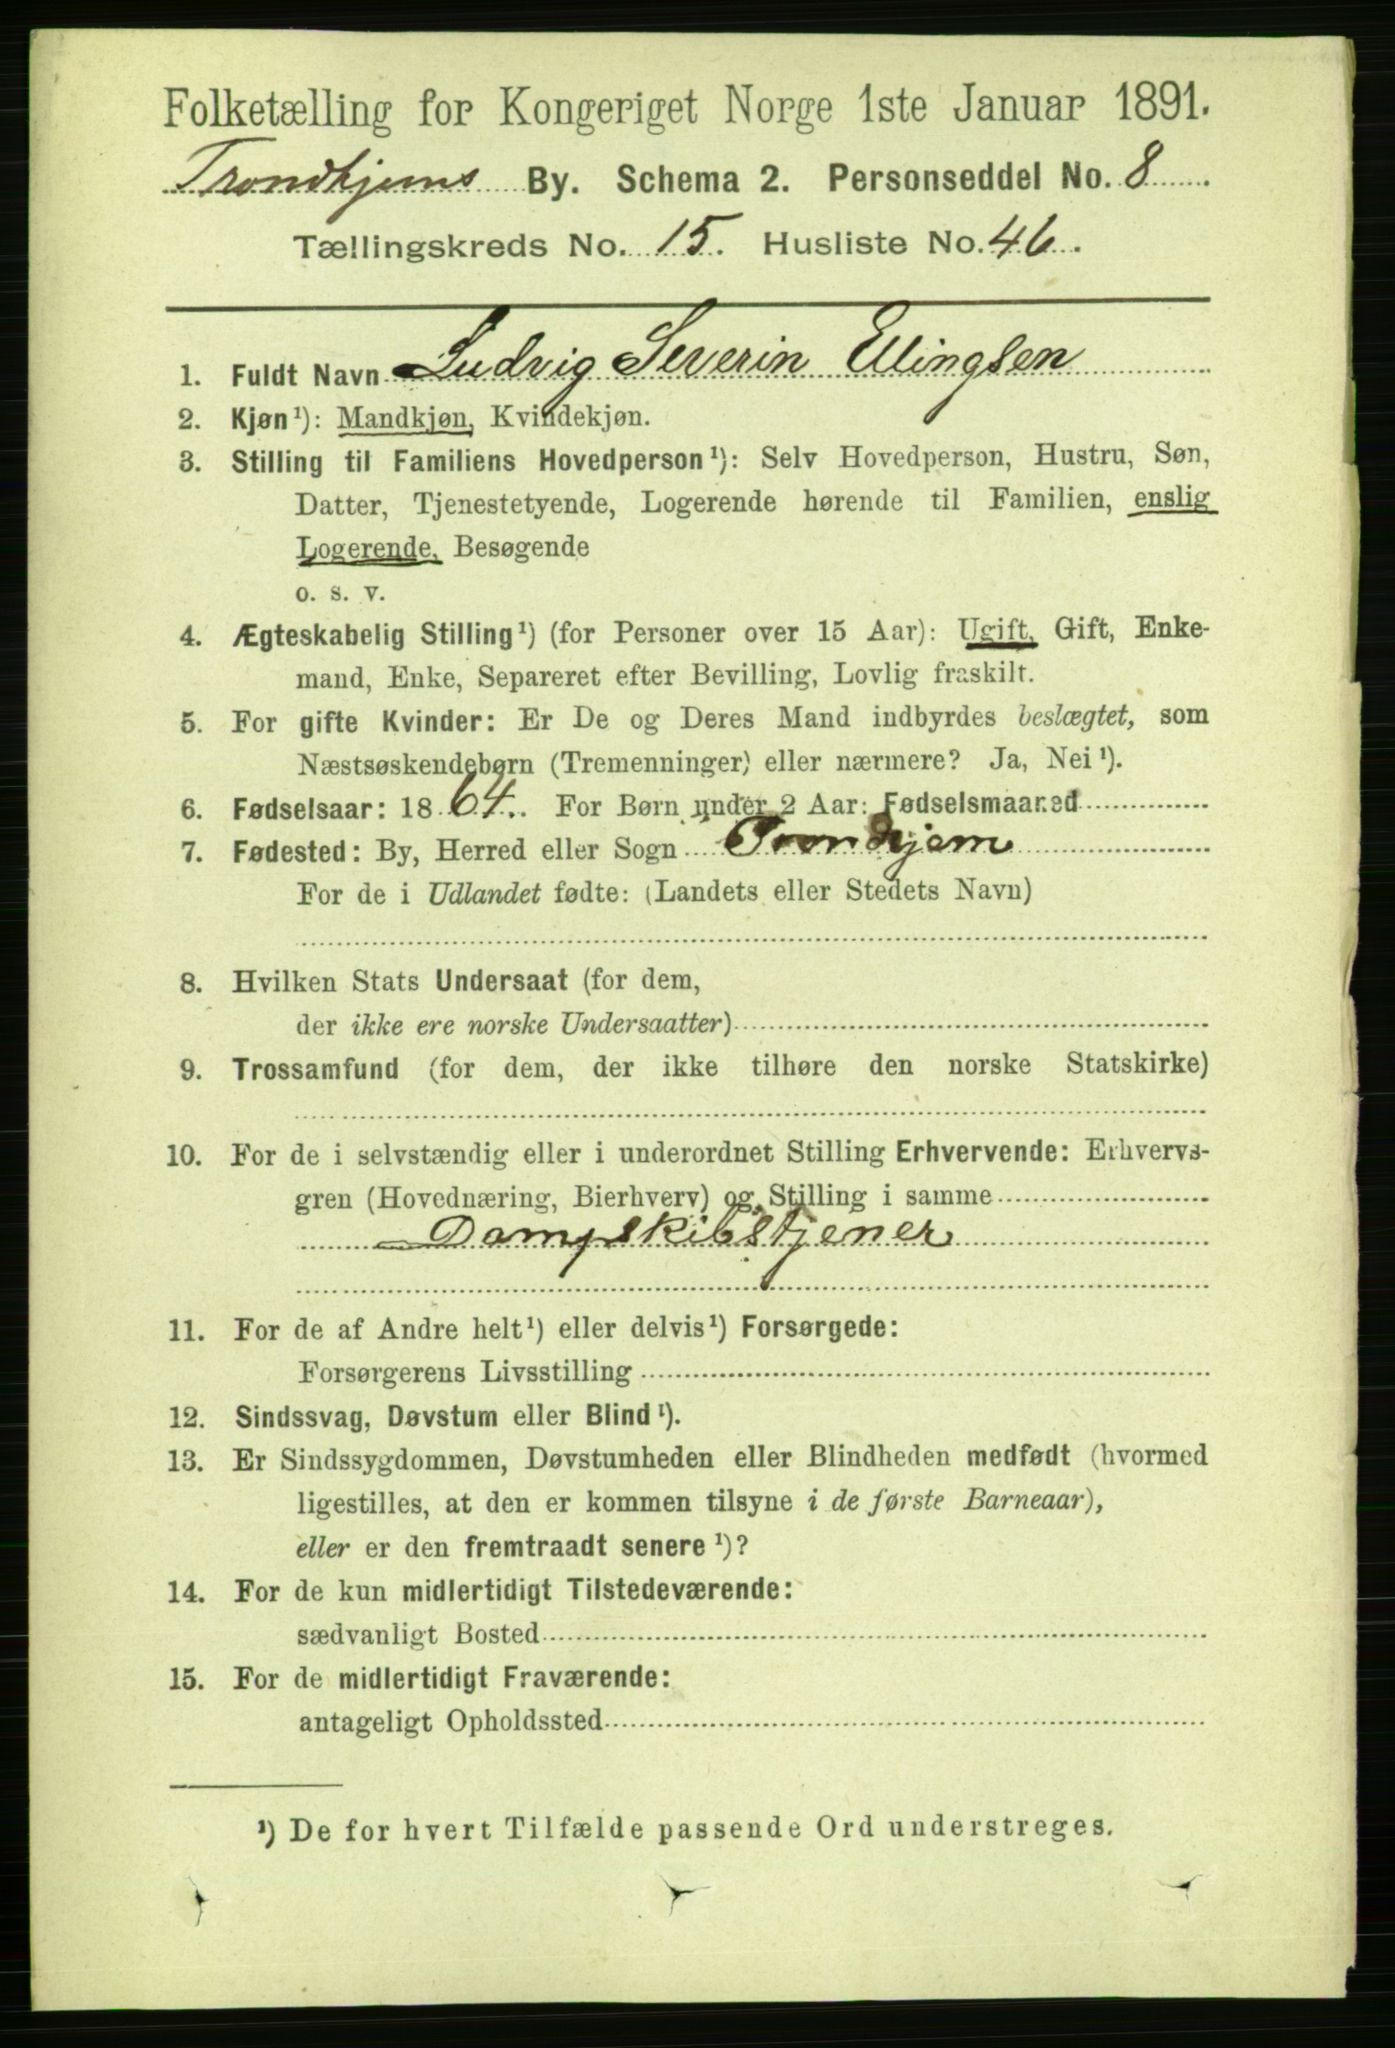 Folketælling for Kongeriget Norge 1ste Januar 1891.
Trondhjems By. Schema 2. Personseddel No. 8
Tællingskreds No. 15. Husliste No. 46.
1. Fuldt Navn Ludvig Severin Ellingsen
2. Kjøn¹): Mandkjøn, Kvindekjøn.
3. Stilling til Familiens Hovedperson¹): Selv Hovedperson, Hustru, Søn,
Datter, Tjenestetyende, Logerende hørende til Familien, enslig
Logerende, Besøgende
o. s. v.
4. Ægteskabelig Stilling¹) (for Personer over 15 Aar): Ugift, Gift, Enke-
mand, Enke, Separeret efter Bevilling, Lovlig fraskilt.
5. For gifte Kvinder: Er De og Deres Mand indbyrdes beslægtet, som
Næstsøskendebørn (Tremenninger) eller nærmere? Ja, Nei¹).
6. Fødselsaar: 1864. For Børn under 2 Aar: Fødselsmaaned
7. Fødested: By, Herred eller Sogn Trondhjem
For de i Udlandet fødte: (Landets eller Stedets Navn)
8. Hvilken Stats Undersaat (for dem,
der ikke ere norske Undersaatter)
9. Trossamfund (for dem, der ikke tilhøre den norske Statskirke)
10. For de i selvstændig eller i underordnet Stilling Erhvervende: Erhvervs-
gren (Hovednæring, Bierhverv) og Stilling i samme
Dampskibstjener
11. For de af Andre helt¹) eller delvis¹) Forsørgede:
Forsørgerens Livsstilling
12. Sindssvag, Døvstum eller Blind¹).
13. Er Sindssygdommen, Døvstumheden eller Blindheden medfødt (hvormed
ligestilles, at den er kommen tilsyne i de første Barneaar),
eller er den fremtraadt senere¹)?
14. For de kun midlertidigt Tilstedeværende:
sædvanligt Bosted
15. For de midlertidigt Fraværende:
antageligt Opholdssted
¹) De for hvert Tilfælde passende Ord understreges.